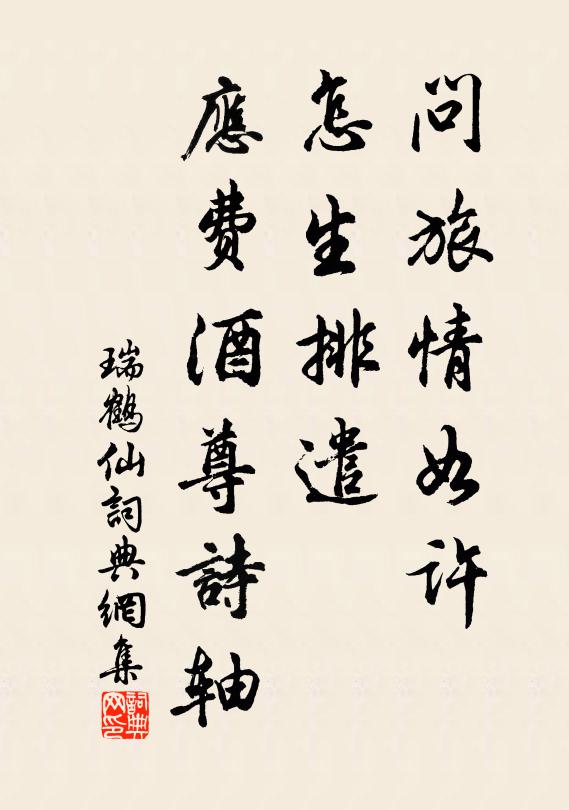 問旅情如许
怎生排遣
應費酒尊詩轴
瑞鶴仙詞典網集
詞典
网印